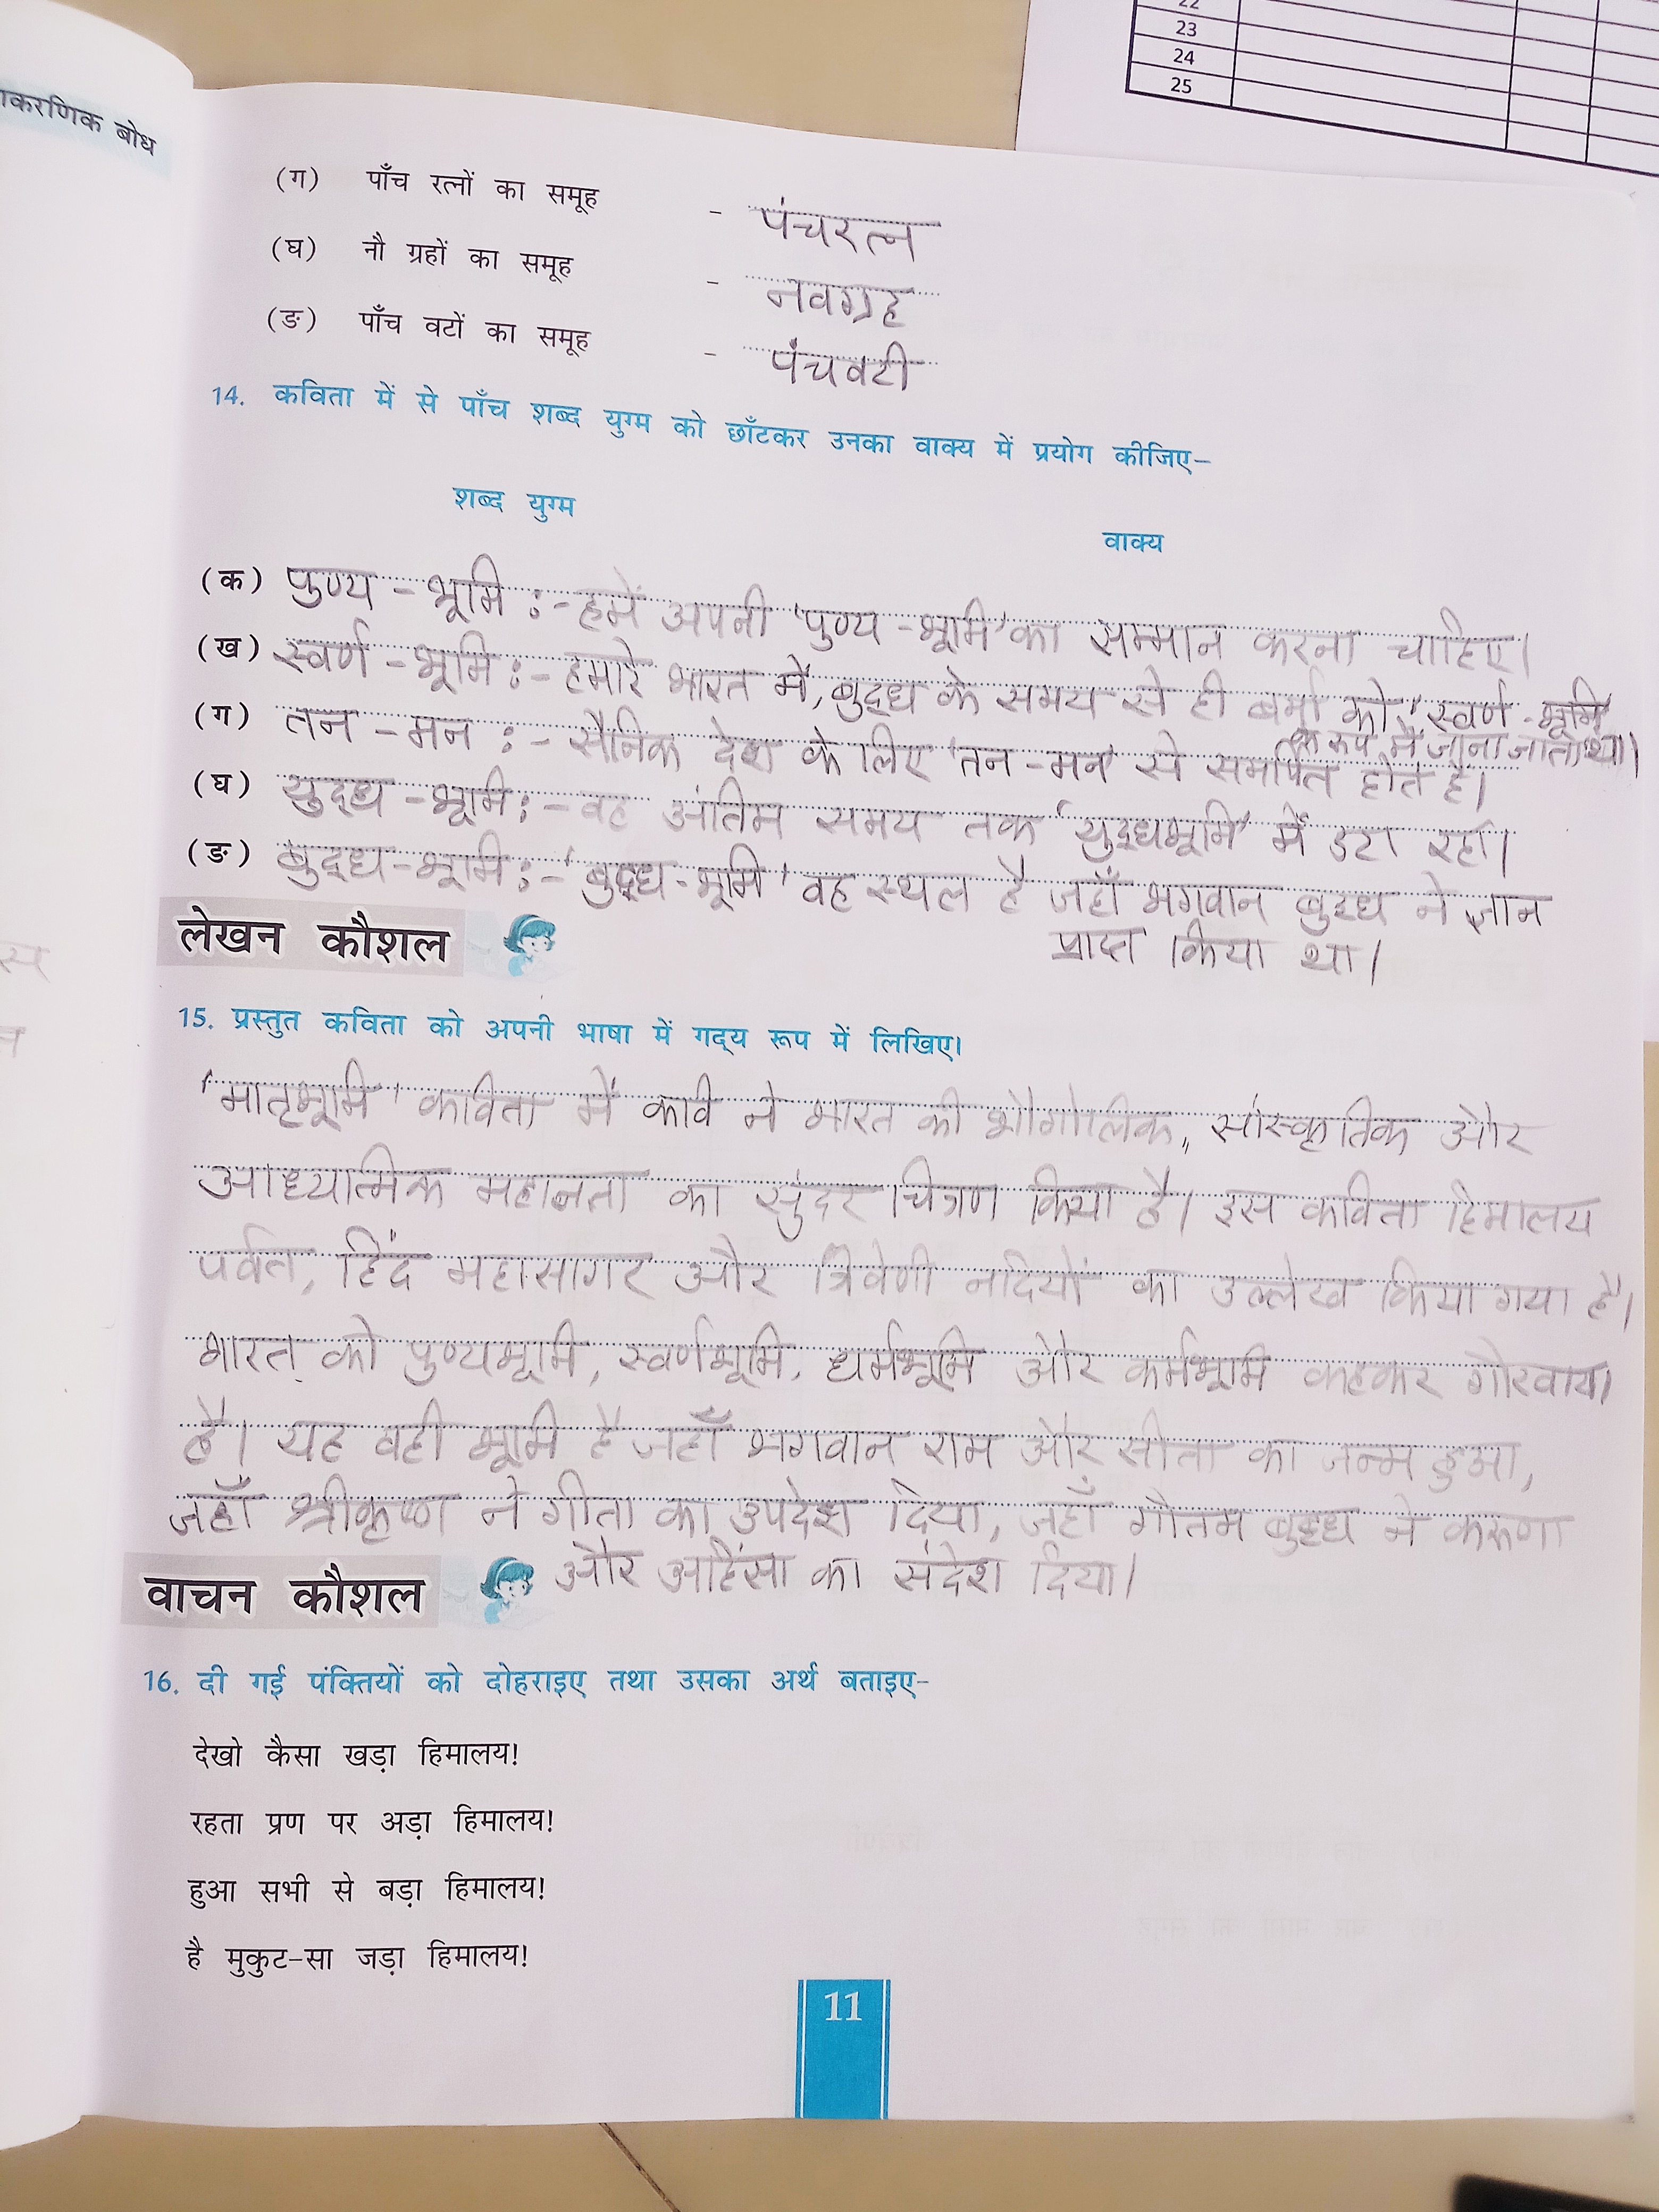 22
23
24
25
ाकरणिक बोध
(ग) पाँच रत्नों का समूह - पंचरत्न
(घ) नौ ग्रहों का समूह - नवग्रह
(ङ) पाँच वटों का समूह - पंचवटी
14. कविता में से पाँच शब्द युग्म को छाँटकर उनका वाक्य में प्रयोग कीजिए-
शब्द युग्म वाक्य
(क) पुण्य - भूमि :- हमें अपनी 'पुण्य - भूमि' का सम्मान करना चाहिए।
(ख) स्वर्ण - भूमि :- हमारे भारत में, बुद्ध के समय से ही बर्मा को 'स्वर्ण - भूमि'
के रूप में जाना जाता था।
(ग) तन - मन :- सैनिक देश के लिए 'तन - मन' से समर्पित होते है।
(घ) युद्ध - भूमि :- वह अंतिम समय तक 'युद्धभूमि' में डटा रहा।
(ङ) बुद्ध - भूमि :- 'बुद्ध - भूमि' वह स्थल है जहाँ भगवान बुद्ध ने ज्ञान
प्राप्त किया था।
लेखन कौशल
15. प्रस्तुत कविता को अपनी भाषा में गद्य रूप में लिखिए।
'मातृभूमि' कविता में कवि ने भारत की भौगोलिक, सांस्कृतिक और
आध्यात्मिक महानता का सुंदर चित्रण किया है। इस कविता हिमालय
पर्वत, हिंद महासागर और त्रिवेणी नदियों का उल्लेख किया गया है।
भारत को पुण्यभूमि, स्वर्णभूमि, धर्मभूमि और कर्मभूमि कहकर
है। यह वही भूमि है जहाँ भगवान राम और सीता का जन्म हुआ,
जहाँ श्रीकृष्ण ने गीता का उपदेश दिया, जहाँ गौतम बुद्ध ने करुणा
और अहिंसा का संदेश दिया।
वाचन कौशल
16. दी गई पंक्तियों को दोहराइए तथा उसका अर्थ बताइए-
देखो कैसा खड़ा हिमालय!
रहता प्रण पर अड़ा हिमालय!
हुआ सभी से बड़ा हिमालय!
है मुकुट-सा जड़ा हिमालय!
11